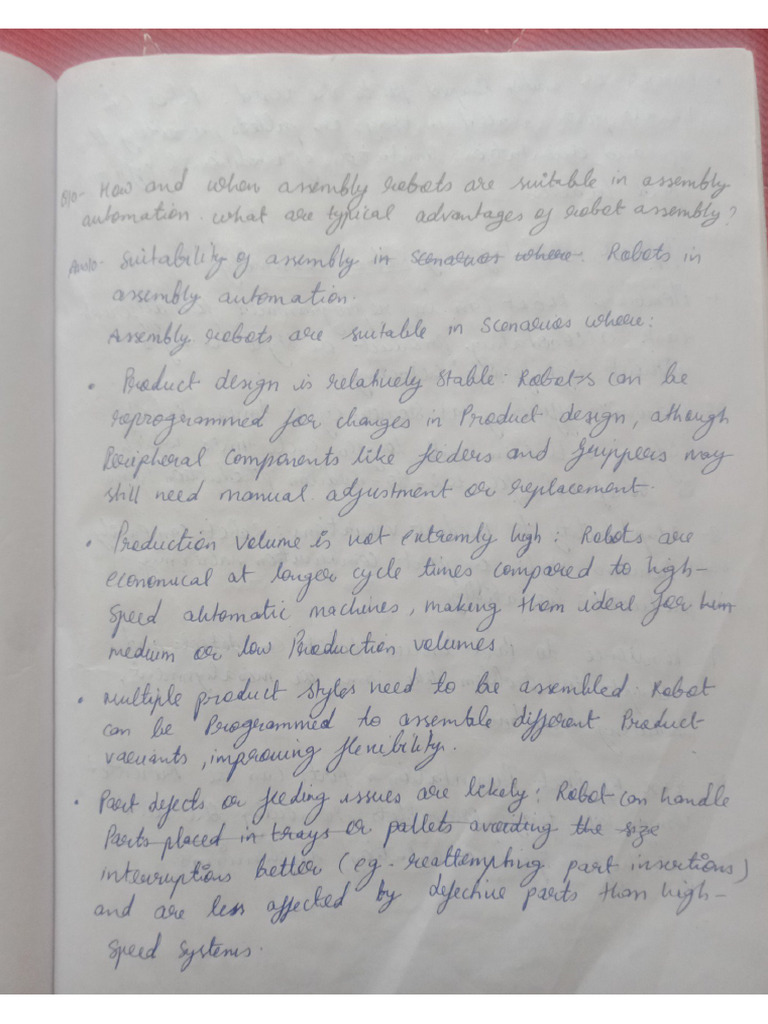 Q10- How and when assembly robots are suitable in assembly
automation. what are typical advantages of robot assembly?
Ans10- Suitability of assembly in Scenarios where. Robots in
assembly automation.
Assembly robots are suitable in Scenarios where:
• Product design is relatively stable. Robots can be
reprogrammed for changes in Product design, athough
Peripheral Components like feeders and grippers may
still need manual adjustment or replacement.
• Production volume is not extremly high: Robots are
economical at longer cycle times compared to high-
speed automatic machines, making them ideal for
medium or low Production volumes
• Multiple product styles need to be assembled. Robot
can be Programmed to assemble different Product
variants, improving flexibility.
• Part defects or feeding issues are likely: Robot can handle
Parts placed in trays or pallets avoiding the size
interruptions better (eg- reattempting part insertions)
and are less affected by defective parts than high-
speed systems.